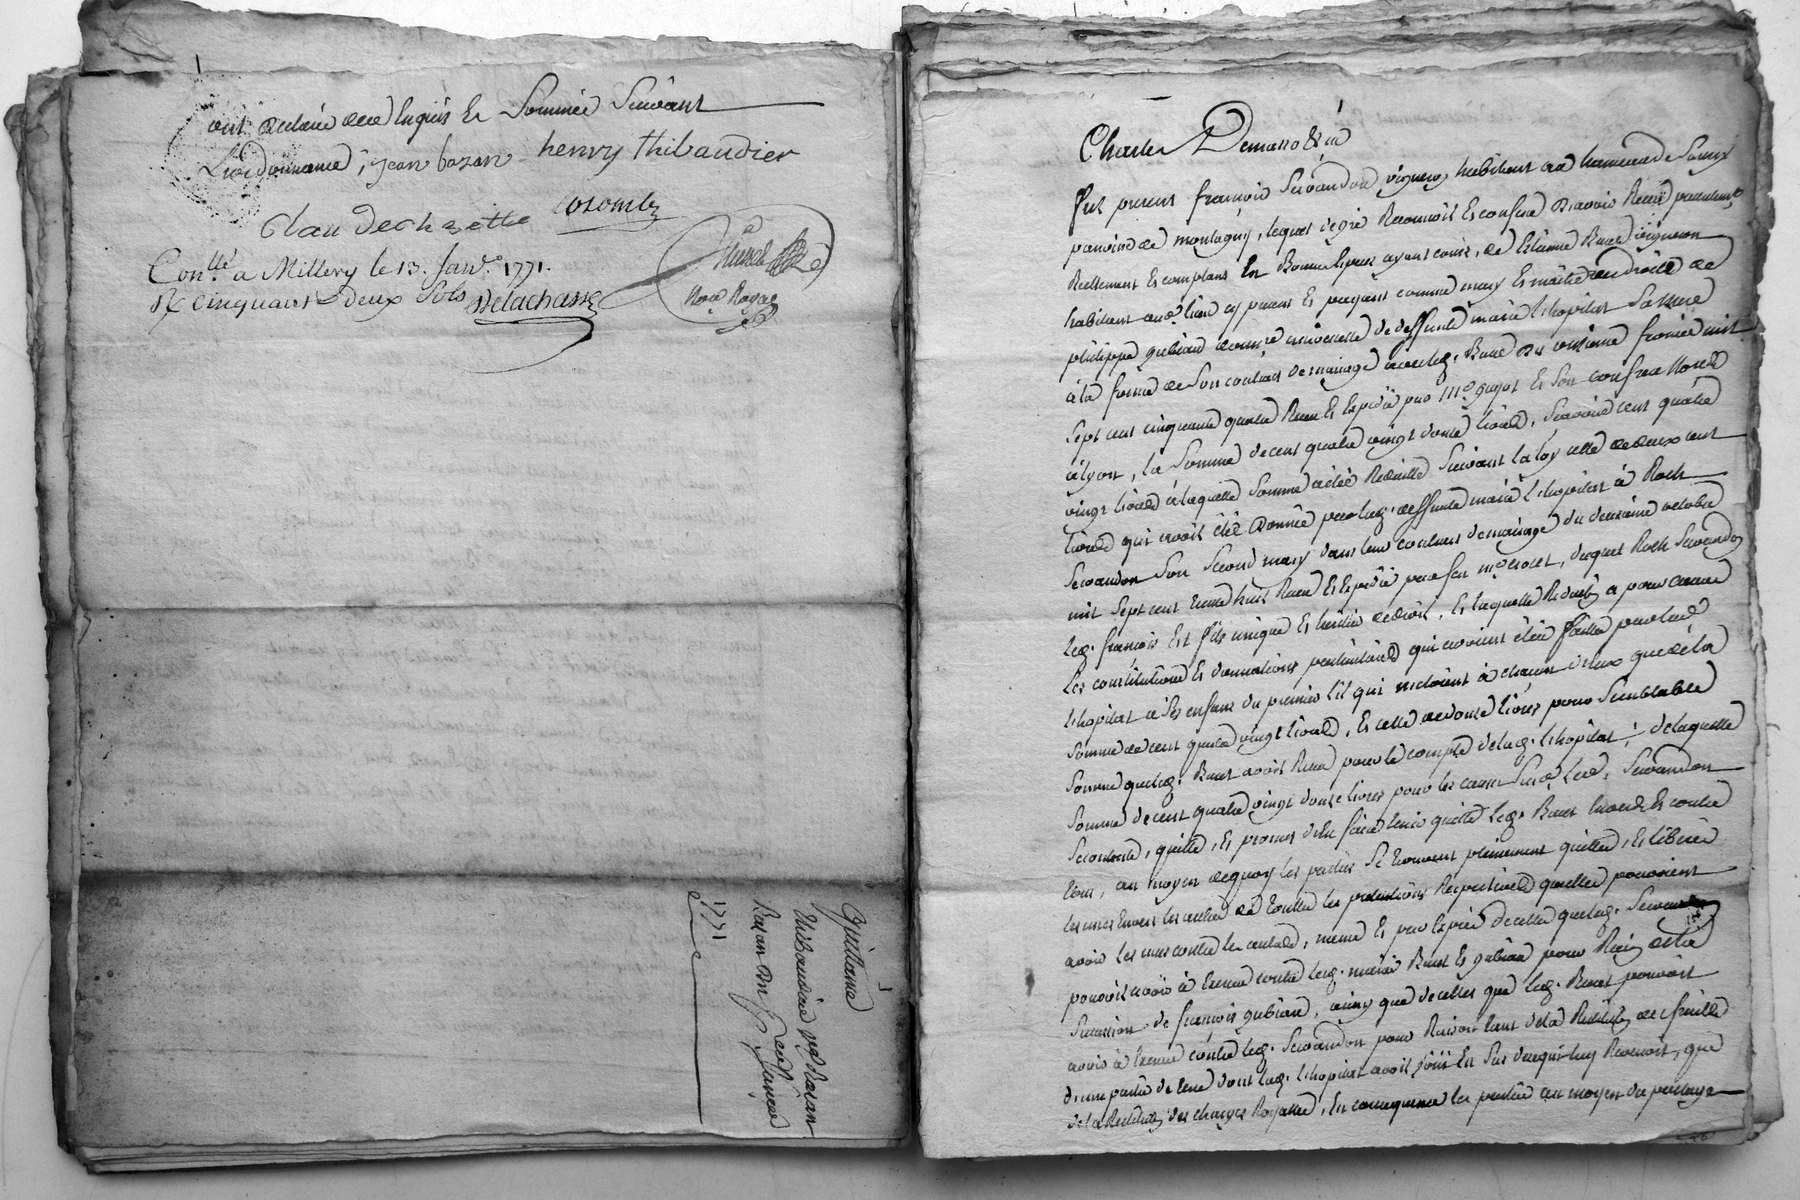 ont declaré de ce enquis et sommés suivant
L'ordonnance, jean bazan henry thibaudier
Claudechazette Colomb
Con.llé a Millery le 13. Janv.er 1771.
Rç cinquante deux sols Delachassé
No.re Royal
Quittance
thibaudier Bazan
1771
Charles Demasso &a
fut present françois Servandon vigneron habitant au hameau de Sourzy
paroisse de montagny, lequel de gré Reconnoit et confesse avoir Receü presentement
Reellement et comptant en Bonnes especes ayant cours, de Etienne Buer vigneron
habitant aud. lieu cy present et payant comme mary et maitre des droits de
philippe gubian heritiere universelle de deffunte marie Lhopital sa mere
a la forme de son contrat de mariage avec led. Buer du onzieme fevrier mil
sept cent cinquante quatre Receu et Expedié par M.e guyot et son confrere No.res
a lyon, la somme de cent quatre vingt douze livres, scavoir cent quatre
vingt livres a laquelle somme a été Reduitte suivant la loy celle de deux cent
livres qui avoit été donnée par lad. deffunte marie Lhopital à Roch
Servandon son second mary dans leur contrat de mariage du deuxieme octobre
mil sept cent trente huit Receu et Expedié par feu M.e , duquel Roch Servandon
led. françois est fils unique et heritier de droit, et laquelle Reduction a pour cause
les constitutions et donnations particulieres qui avoient été faittes par lad.
Lhopital à ses enfans du premier lit qui n'etoient à chacun d'eux que de la
somme de cent quatre vingt livres, et celle de douze livres pour semblable
somme que led. Buer avoit Receu pour le compte de lad. Lhopital; de laquelle
somme de cent quatre vingt douze livres pour les causes susd. led. Servandon
se contente, quitte, et promet d'en faire tenir quitte led. Buer Envers et contre
tous, au moyen de quoy les parties se trouvent pleinement quittes, et liberées
les unes Envers les autres de toutes les pretentions Respectives qu'elles pouvoient
avoir les unes contre les autres, meme et par exprés de celles que led. Servandon
pouvoit avoir à Exercer contre lesd. mariés Buer et gubian pour Raison de la
succession de françois gubian, ainsy que de celles que led. Buer pouvoit
avoir à Exercer contre led. Servandon pour Raison tant de la
d'une partie de terre dont lad. Lhopital avoit joüi En sus de ce qui luy Revenoit, que
de la des charges Royalles, En consequence les parties au moyen du partage